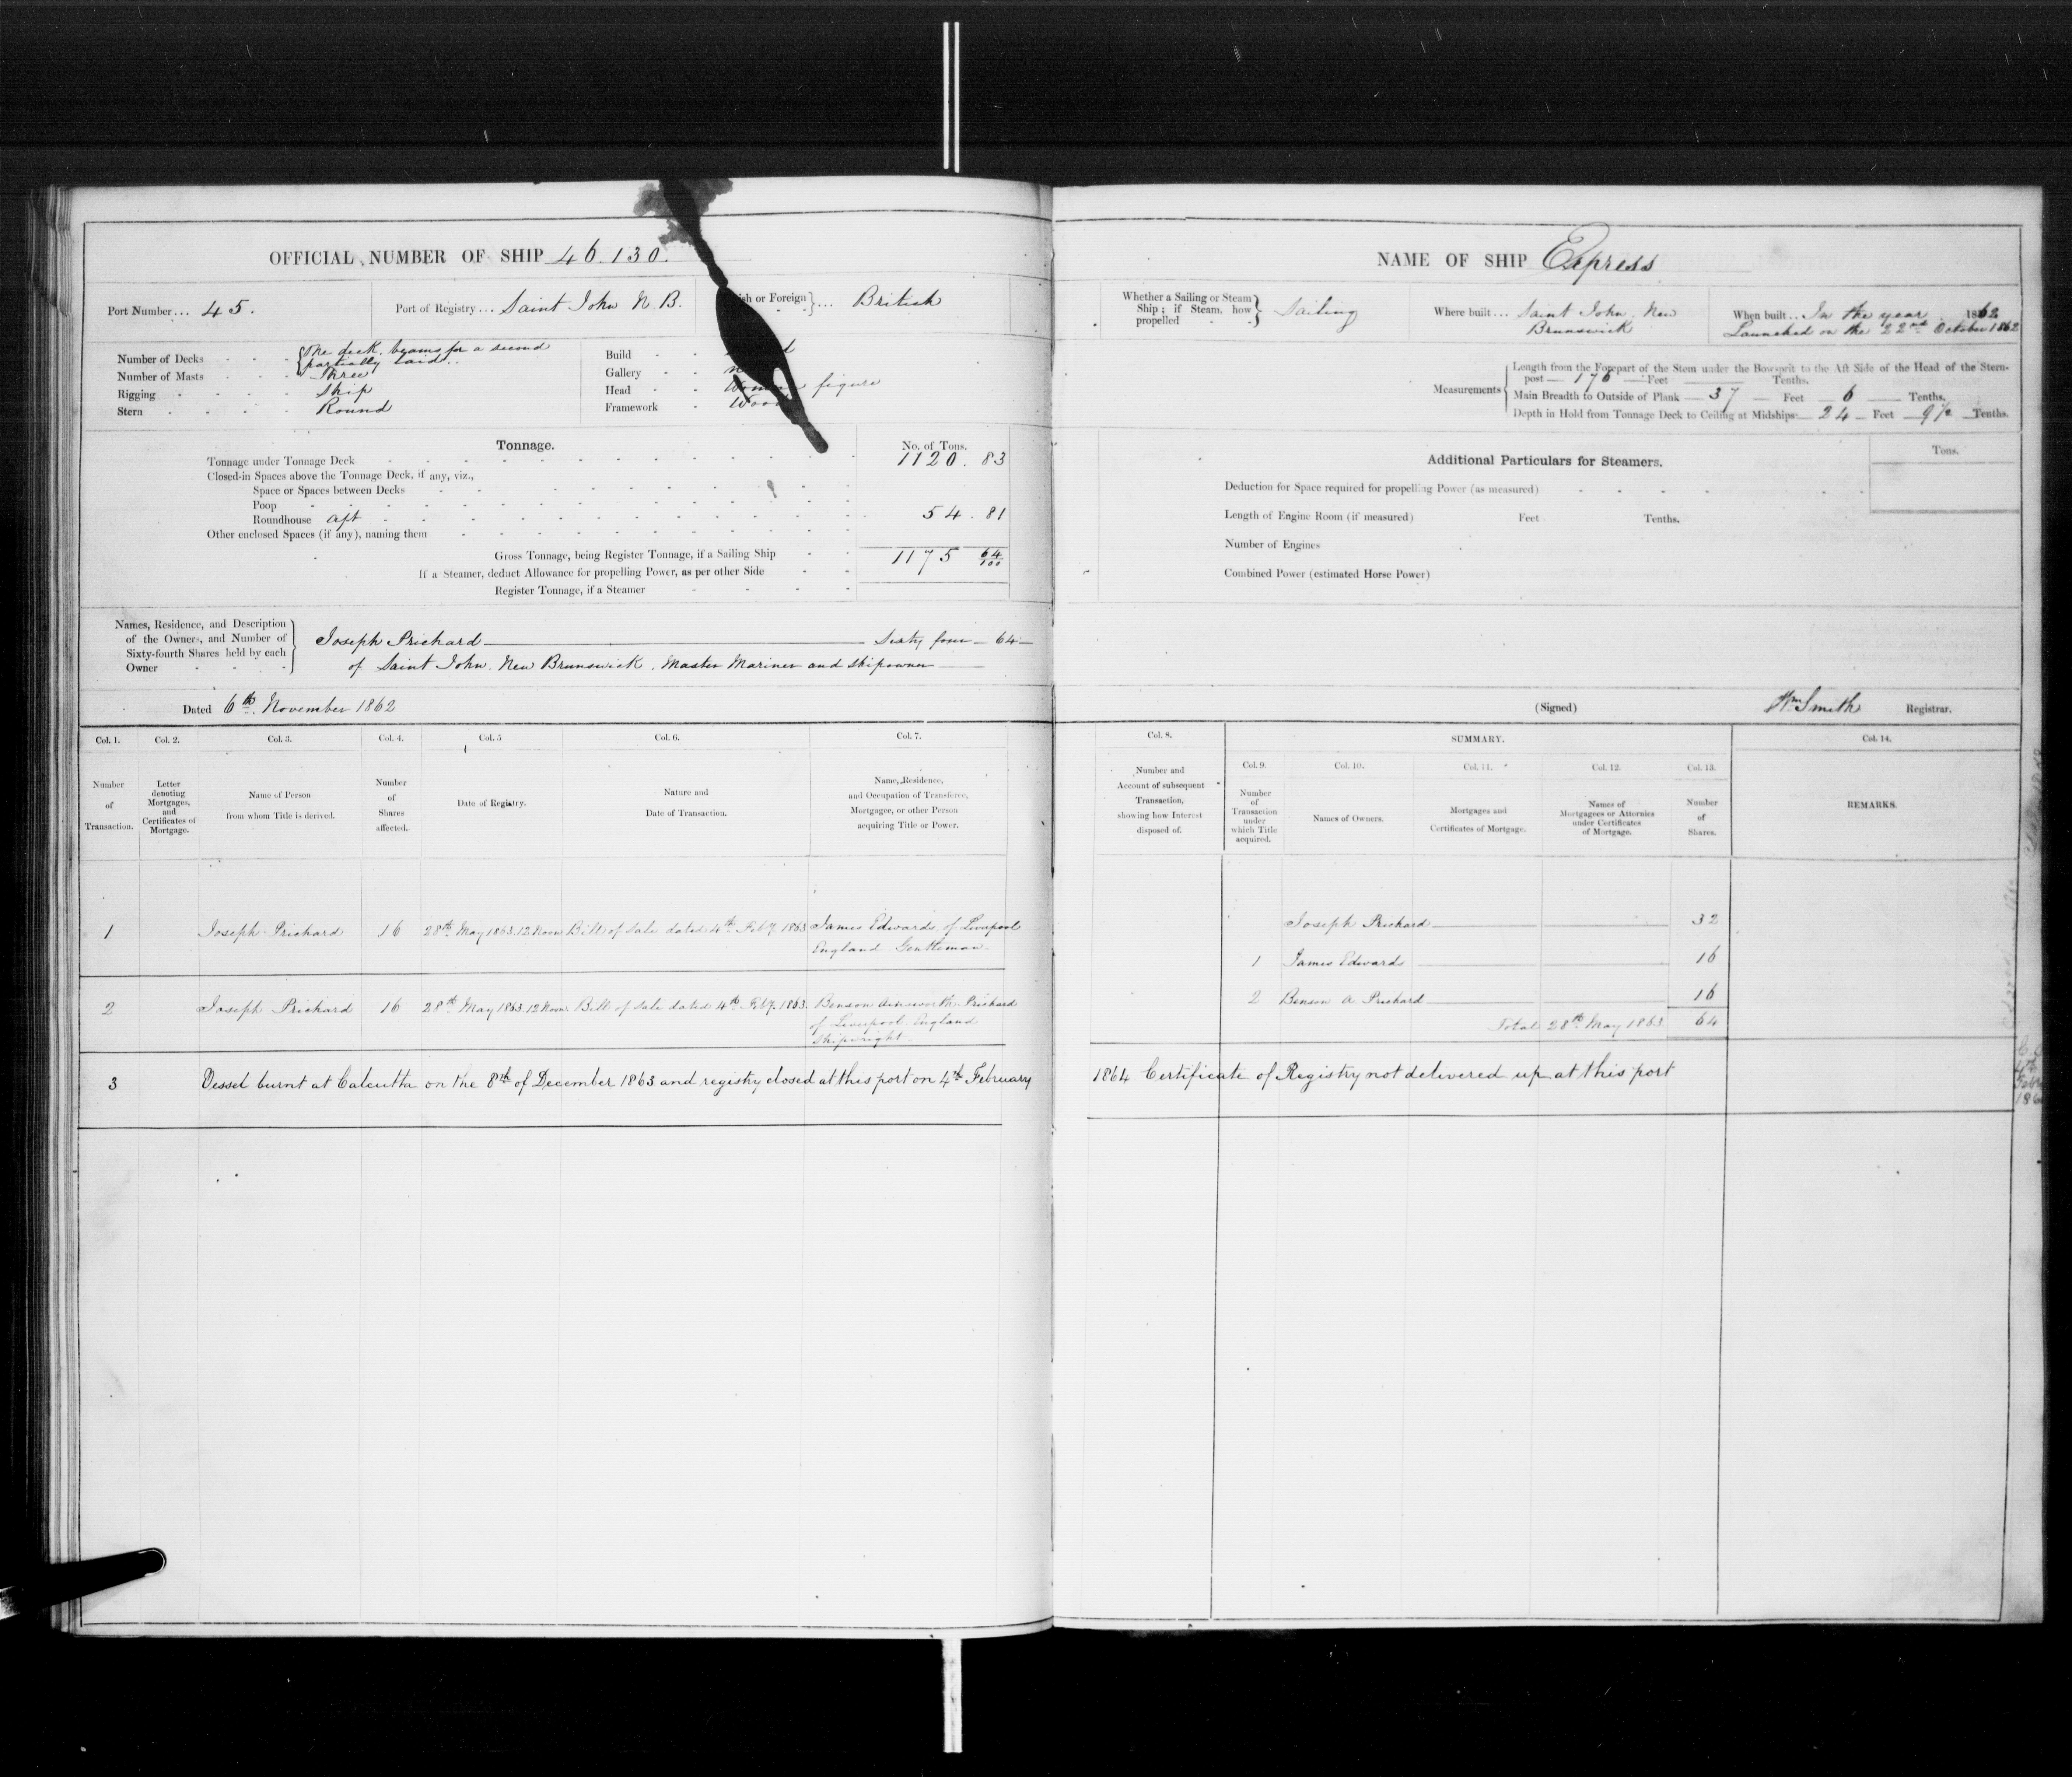 OFFICIAL NUMBER OF SHIP 46.130.
Port Number... 45.
Port of Registry... Saint John N.B.
ish or Foreign }... British
Number of Decks {One deck, beams for a second
partially laid..
Number of Masts Three
Rigging Ship
Stern Round
Build
Gallery
Head Woman figure
Framework Wood
Tonnage.
No. of Tons.
Tonnage under Tonnage Deck 1120.83
Closed-in Spaces above the Tonnage Deck, if any, viz.,
Space or Spaces between Decks
Poop
Roundhouse aft 54.81
Other enclosed Spaces (if any), naming them
Gross Tonnage, being Register Tonnage, if a Sailing Ship 1175 64/100
If a Steamer, deduct Allowance for propelling Power, as per other Side
Register Tonnage, if a Steamer
Names, Residence, and Description
of the Owners, and Number of
Sixty-fourth Shares held by each
Owner
Joseph Prichard — Sixty four — 64 —
of Saint John. New Brunswick. Master Mariner and Shipowner —
Dated 6th. November 1862
Col. 1. Col. 2. Col. 3. Col. 4. Col. 5 Col. 6. Col. 7.
Number
of
Transaction.
Letter
denoting
Mortgages,
and
Certificates of
Mortgage.
Name of Person
from whom Title is derived.
Number
of
Shares
affected.
Date of Registry.
Nature and
Date of Transaction.
Name, Residence,
and Occupation of Transferee,
Mortgagee, or other Person
acquiring Title or Power.
1 Joseph Prichard 16 28th May 1863. 12 Noon Bill of Sale dated 4th Feby. 1863 James Edwards of Liverpool
England Gentleman.
2 Joseph Prichard 16 28th May 1863. 12 Noon Bill of Sale dated 4th Feby. 1863. Benson Ainsworth Prichard
of Liverpool. England
Shipwright.
3 Vessel burnt at Calcutta on the 8th of December 1863 and registry closed at this port on 4th February
NAME OF SHIP Express
Whether a Sailing or Steam
Ship; if Steam, how
propelled
Sailing
Where built... Saint John. New
Brunswick
When built... In the year 1862
Launched on the 22nd October 1862
Measurements
Length from the Forepart of the Stem under the Bowsprit to the Aft Side of the Head of the Stern-
post — 176 — Feet — Tenths.
Main Breadth to Outside of Plank — 37 — Feet — 6 — Tenths.
Depth in Hold from Tonnage Deck to Ceiling at Midships — 24 — Feet — 9½ — Tenths.
Additional Particulars for Steamers.
Tons.
Deduction for Space required for propelling Power (as measured)
Length of Engine Room (if measured) Feet Tenths.
Number of Engines
Combined Power (estimated Horse Power)
(Signed) Wm Smith Registrar.
Col. 8. SUMMARY. Col. 14.
Col. 9. Col. 10. Col. 11. Col. 12. Col. 13.
Number and
Account of subsequent
Transaction,
showing how Interest
disposed of.
Number
of
Transaction
under
which Title
acquired.
Names of Owners.
Mortgages and
Certificates of Mortgage.
Names of
Mortgagees or Attornies
under Certificates
of Mortgage.
Number
of
Shares.
REMARKS.
Joseph Prichard — 32
1 James Edward — 16
2 Benson A Prichard — 16
Total 28th May 1863 64
1864 Certificate of Registry not delivered up at this port